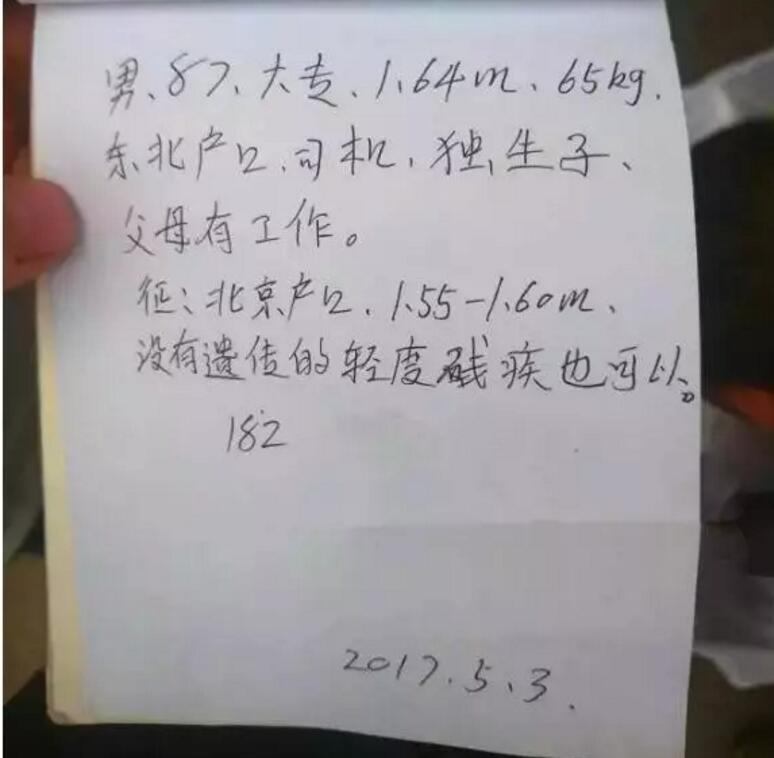 男、87、大专、1.64m、65kg.
东北户口、司机、独生子、
父母有工作。
征：北京户口、1.55-1.60m、
没有遗传的轻度残疾也可以。
182
2017.5.3.